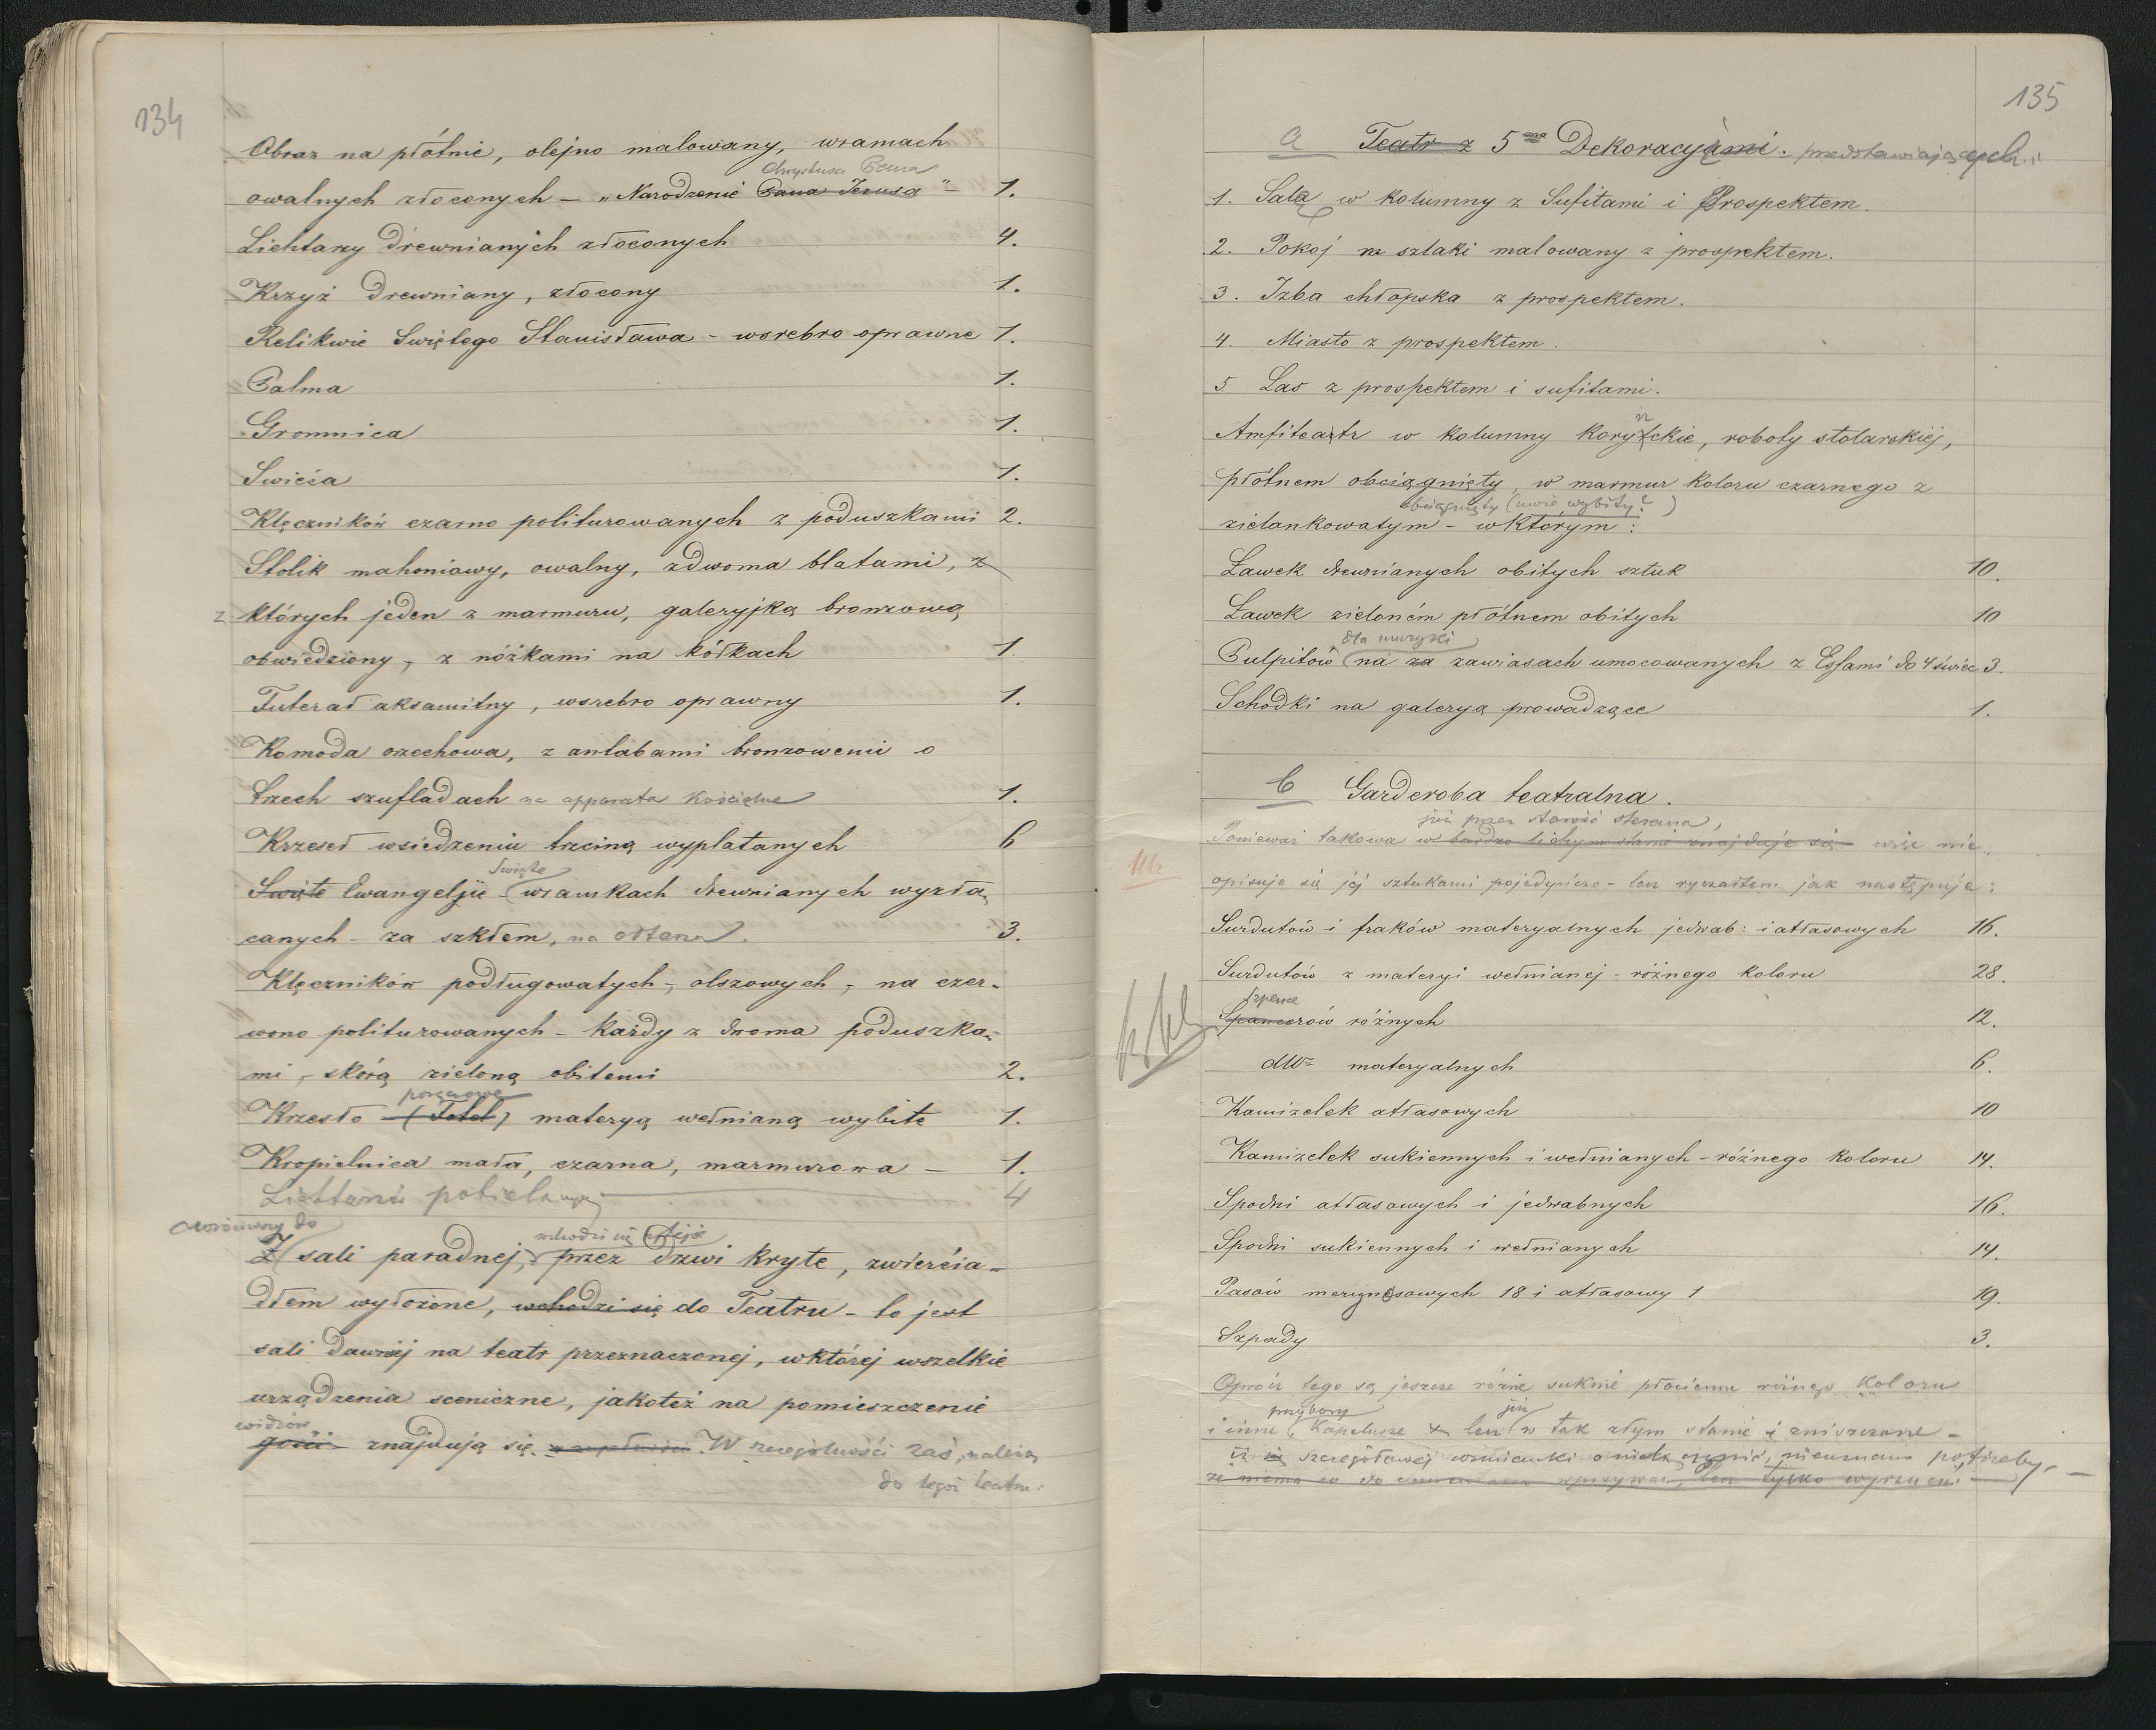 134
Obraz na płótnie, olejno malowany, wramach
Chrystusa Pana
owalnych złoconych — „Narodzenie Pana Jezusa" — 1.
Lichtarzy drewnianych złoconych 4.
Krzyż drewniany, złocony 1.
Relikwie Swiętego Stanisława - wsrebro oprawne 1.
Palma 1.
Gromnica 1.
Swiéca 1.
Klęczników czarno politurowanych z poduszkami 2.
Stolik mahoniowy, owalny, zdwoma blatami, z
z których jeden z marmuru, galeryjką bronzową
obwiedziony, z nóżkami na kółkach 1
Futerał aksamitny, wsrebro oprawny 1.
Komoda orzechowa, z antabami bronzowemi o
trzech szufladach na apparata Kościelne 1.
Krzeseł wsiedzeniu trzciną wyplatanych 6
Swięte
Swięte Ewangelije - wramkach drewnianych wyzła-
canych - za szkłem, na ołtarz. 3.
Klęczników podługowatych, olszowych, na czer-
wono politurowanych - każdy z dwoma poduszka-
mi, - skórą zieloną obitemi 2.
poręczowe
Krzesło (Fotel) materyą wełnianą wybite 1.
Kropielnica mała, czarna, marmurowa — 1.
Lichtarzy pobielanych 4
do
wchodzi się
Z sali paradnej, przez drzwi kryte, zwierścia-
dłem wyłożone, wchodzi się do Teatru - to jest
sali dawniéj na teatr przeznaczonéj, wktóréj wszelkie
urządzenia sceniczne, jakoteż na pomieszczenie
widzów
gości znajdują się. W szczególności zaś, należą
do tegoż teatru:
135
a Teatr z 5ma Dekoracyjami. przedstawiających:
1. Sala w kolumny z Sufitami i Prospektem.
2. Pokoj na szlaki malowany z prospektem.
3. Izba chłopska z prospektem.
4. Miasto z prospektem.
5 Las z prospektem i sufitami.
Amfiteatr w kolumny Koryntckie, roboty stolarskiéj,
płótnem obciągnięty, w marmur koloru czarnego z
obciągnięty (mówić wybity?)
zielonkowatym - wktorym:
Ławek drewnianych obitych sztuk 10.
Ławek zieloném płótnem obitych 10
dla muzyki
Pulpitów na za zawiasach umocowanych z Essami do 4 świec 3.
Schodki na galeryą prowadzące 1.
b Garderoba teatralna.
już przez starość sterana,
Ponieważ takowa w bardzo lichym stanie znajduje się - więc nie
opisuje się jej sztukami pojedyńczo - lecz ryczałtem jak następuje:
Surdutów i fraków materyalnych jedwab: i atłasowych 16.
Surdutów z materyi wełnianej - różnego koloru 28.
Spencerów różnych 12.
dtto materyalnych 6.
Kamizelek atłasowych 10
Kamizelek sukiennych i wełnianych - różnego koloru 14.
Spodni atłasowych i jedwabnych 16.
Spodni sukiennych i wełnianych 14.
Pasów merynosowych 18 i atłasowy 1 19.
Szpady 3.
Oprócz tego są jeszcze różne suknie płócienne różnego Koloru
przybory już
i inne Kapelusze lecz w tak złym stanie i zniszczone -
iż szczegółowej wzmianki o nich czynić, nieuznano potrzeby. -
że niema co do wpisywać, lecz tylko wyrzucić